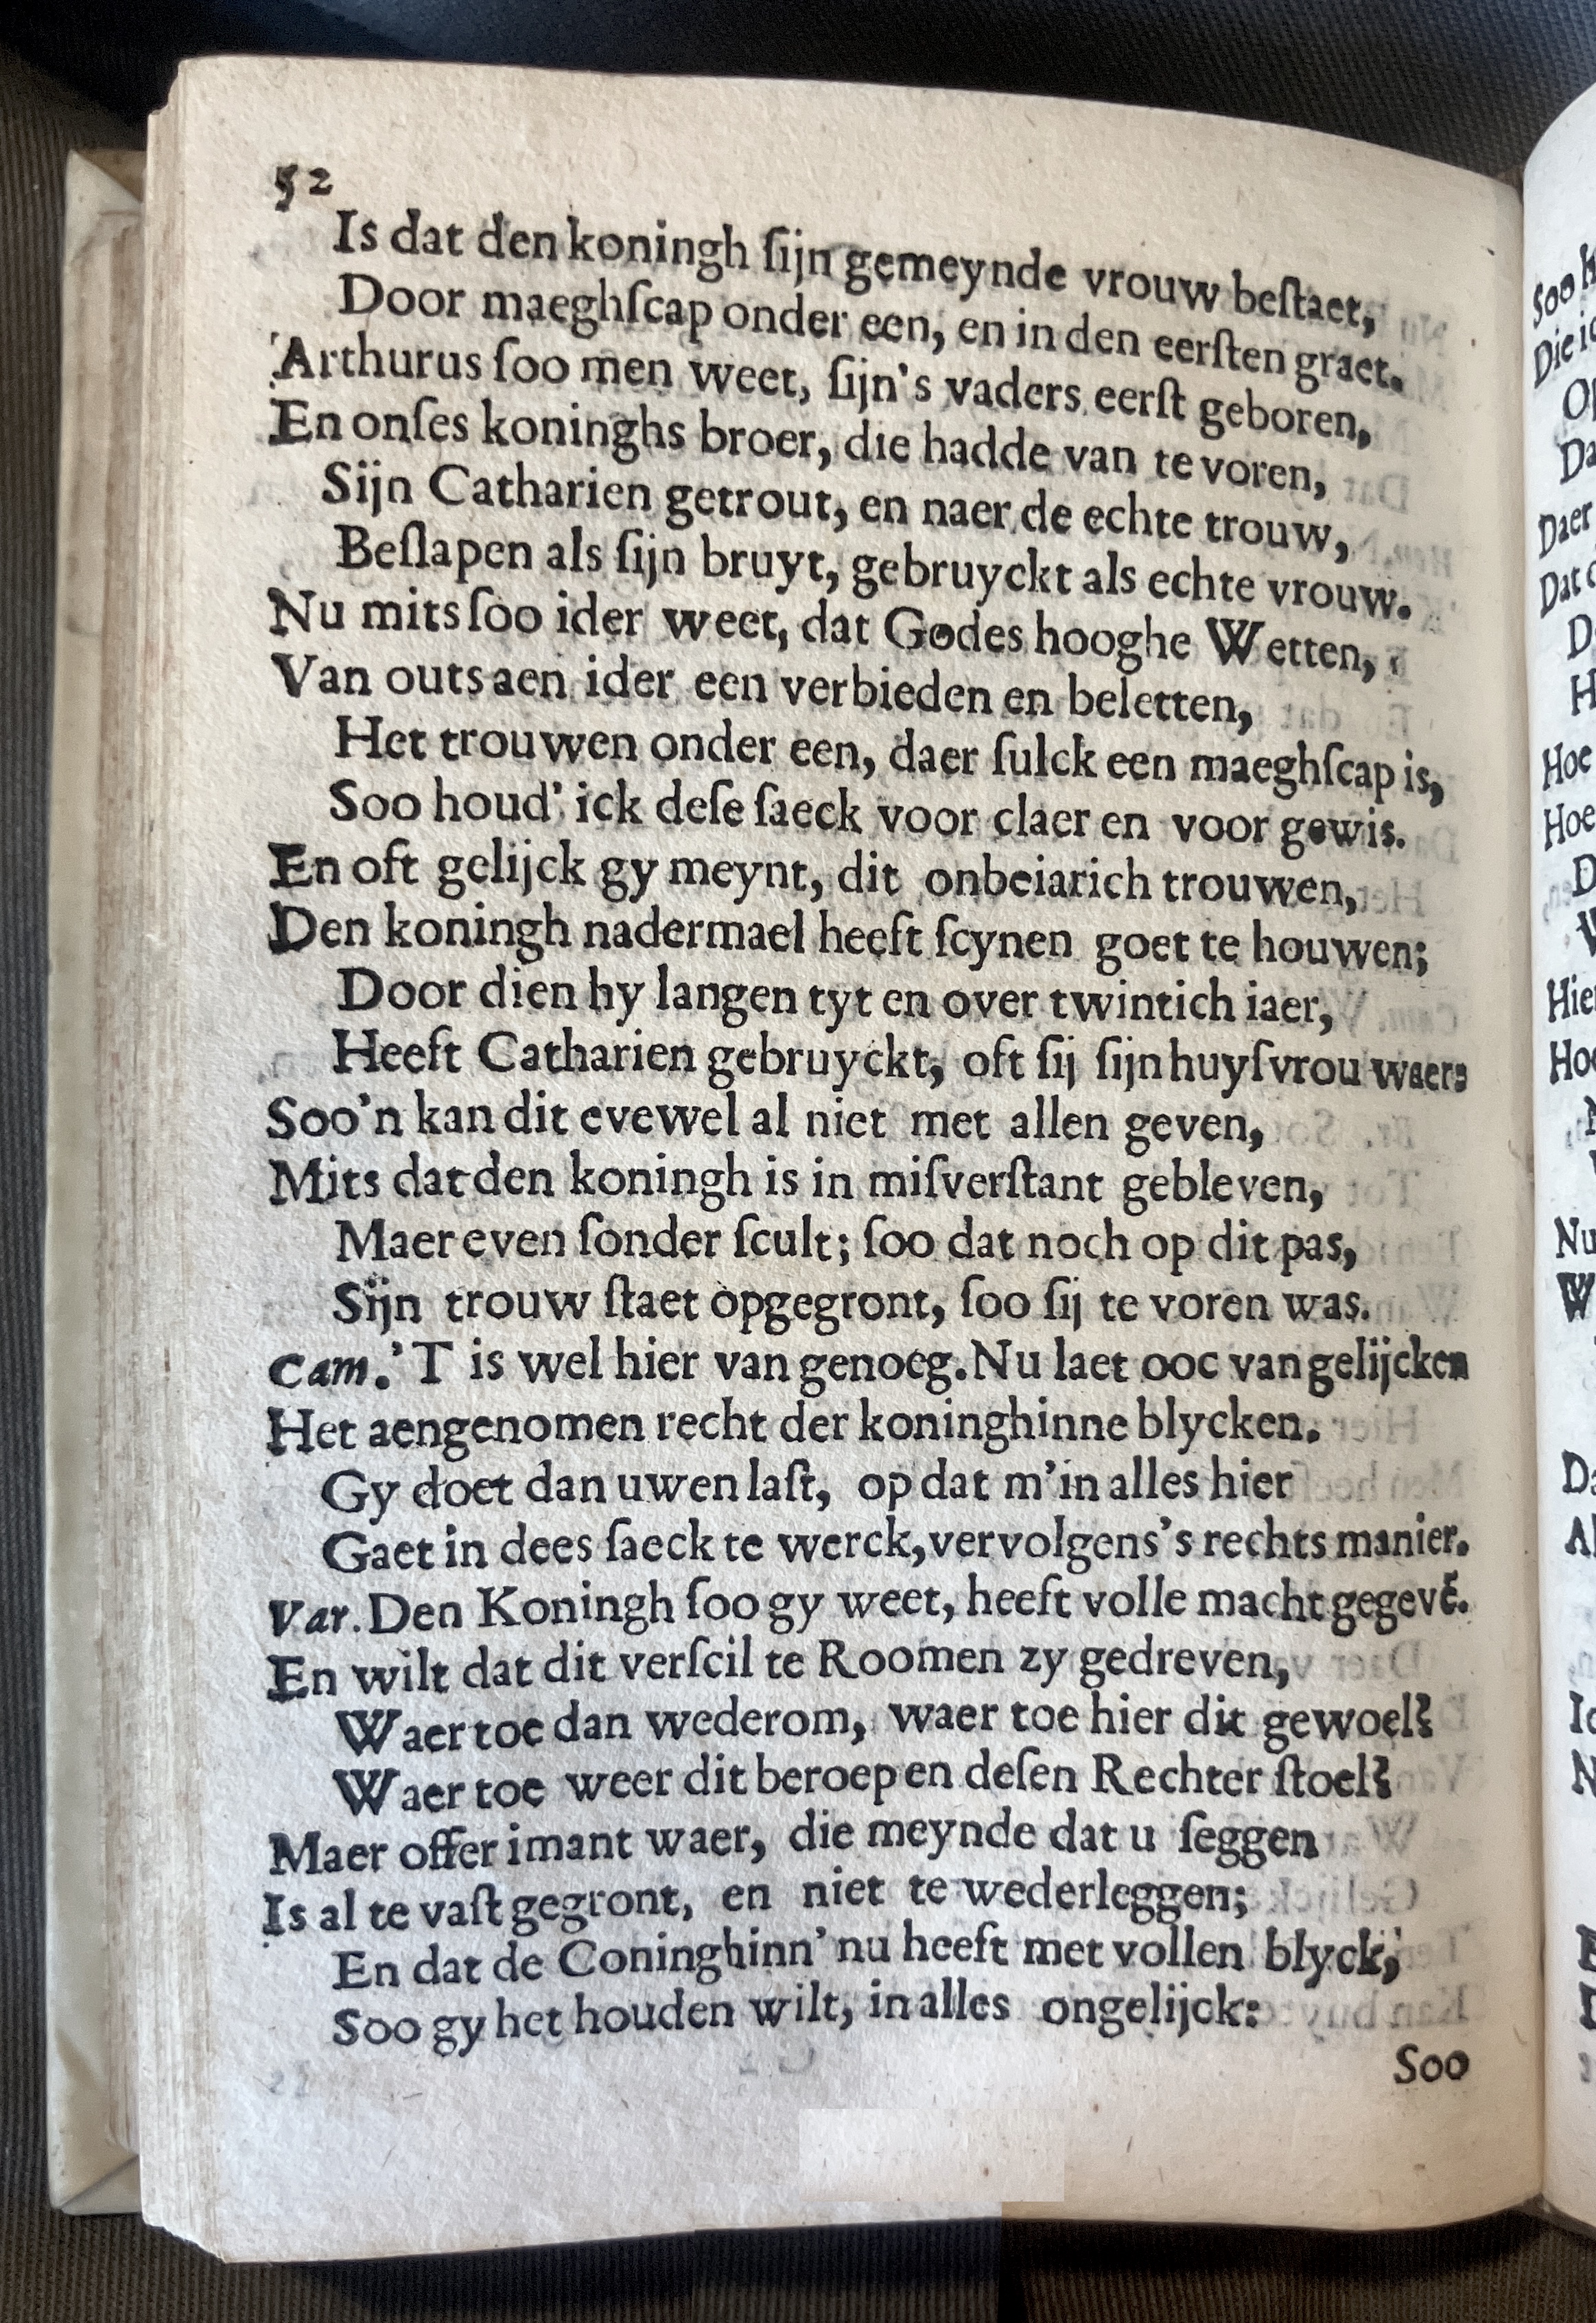 52
Is dat den koningh ſijn gemeynde vrouw beſtaet,
Door maeghſcap onder een, en in den eerſten graet.
Arthurus ſoo men weet, ſijn's vaders eerſt geboren,
En onſes koninghs broer, die hadde van te voren,
Sijn Catharien getrout, en naer de echte trouw,
Beſlapen als ſijn bruyt, gebruyckt als echte vrouw.
Nu mits ſoo ider weet, dat Godes hooghe Wetten,
Van outs aen ider een verbieden en beletten,
Het trouwen onder een, daer ſulck een maeghſcap is,
Soo houd' ick deſe ſaeck voor claer en voor gewis.
En oft gelijck gy meynt, dit onbeiarich trouwen,
Den koningh nadermael heeft ſcynen goet te houwen;
Door dien hy langen tyt en over twintich iaer,
Heeft Catharien gebruyckt, oft ſij ſijn huyſvrou waer:
Soo'n kan dit evewel al niet met allen geven,
Mits dat den koningh is in miſverſtant gebleven,
Maer even ſonder ſcult; ſoo dat noch op dit pas,
Sijn trouw ſtaet opgegront, ſoo ſij te voren was.
Cam. 'T is wel hier van genoeg. Nu laet ooc van gelijcken
Het aengenomen recht der koninghinne blycken.
Gy doet dan uwen laſt, op dat m'in alles hier
Gaet in dees ſaeck te werck, vervolgens's rechts manier.
Var. Den Koningh ſoo gy weet, heeft volle macht gegevē.
En wilt dat dit verſcil te Roomen zy gedreven,
Waer toe dan wederom, waer toe hier dit gewoel?
Waer toe weer dit beroep en deſen Rechter ſtoel?
Maer offer imant waer, die meynde dat u ſeggen
Is al te vaſt gegront, en niet te wederleggen;
En dat de Coninghinn' nu heeft met vollen blyck,
Soo gy het houden wilt, in alles ongelijck:
Soo